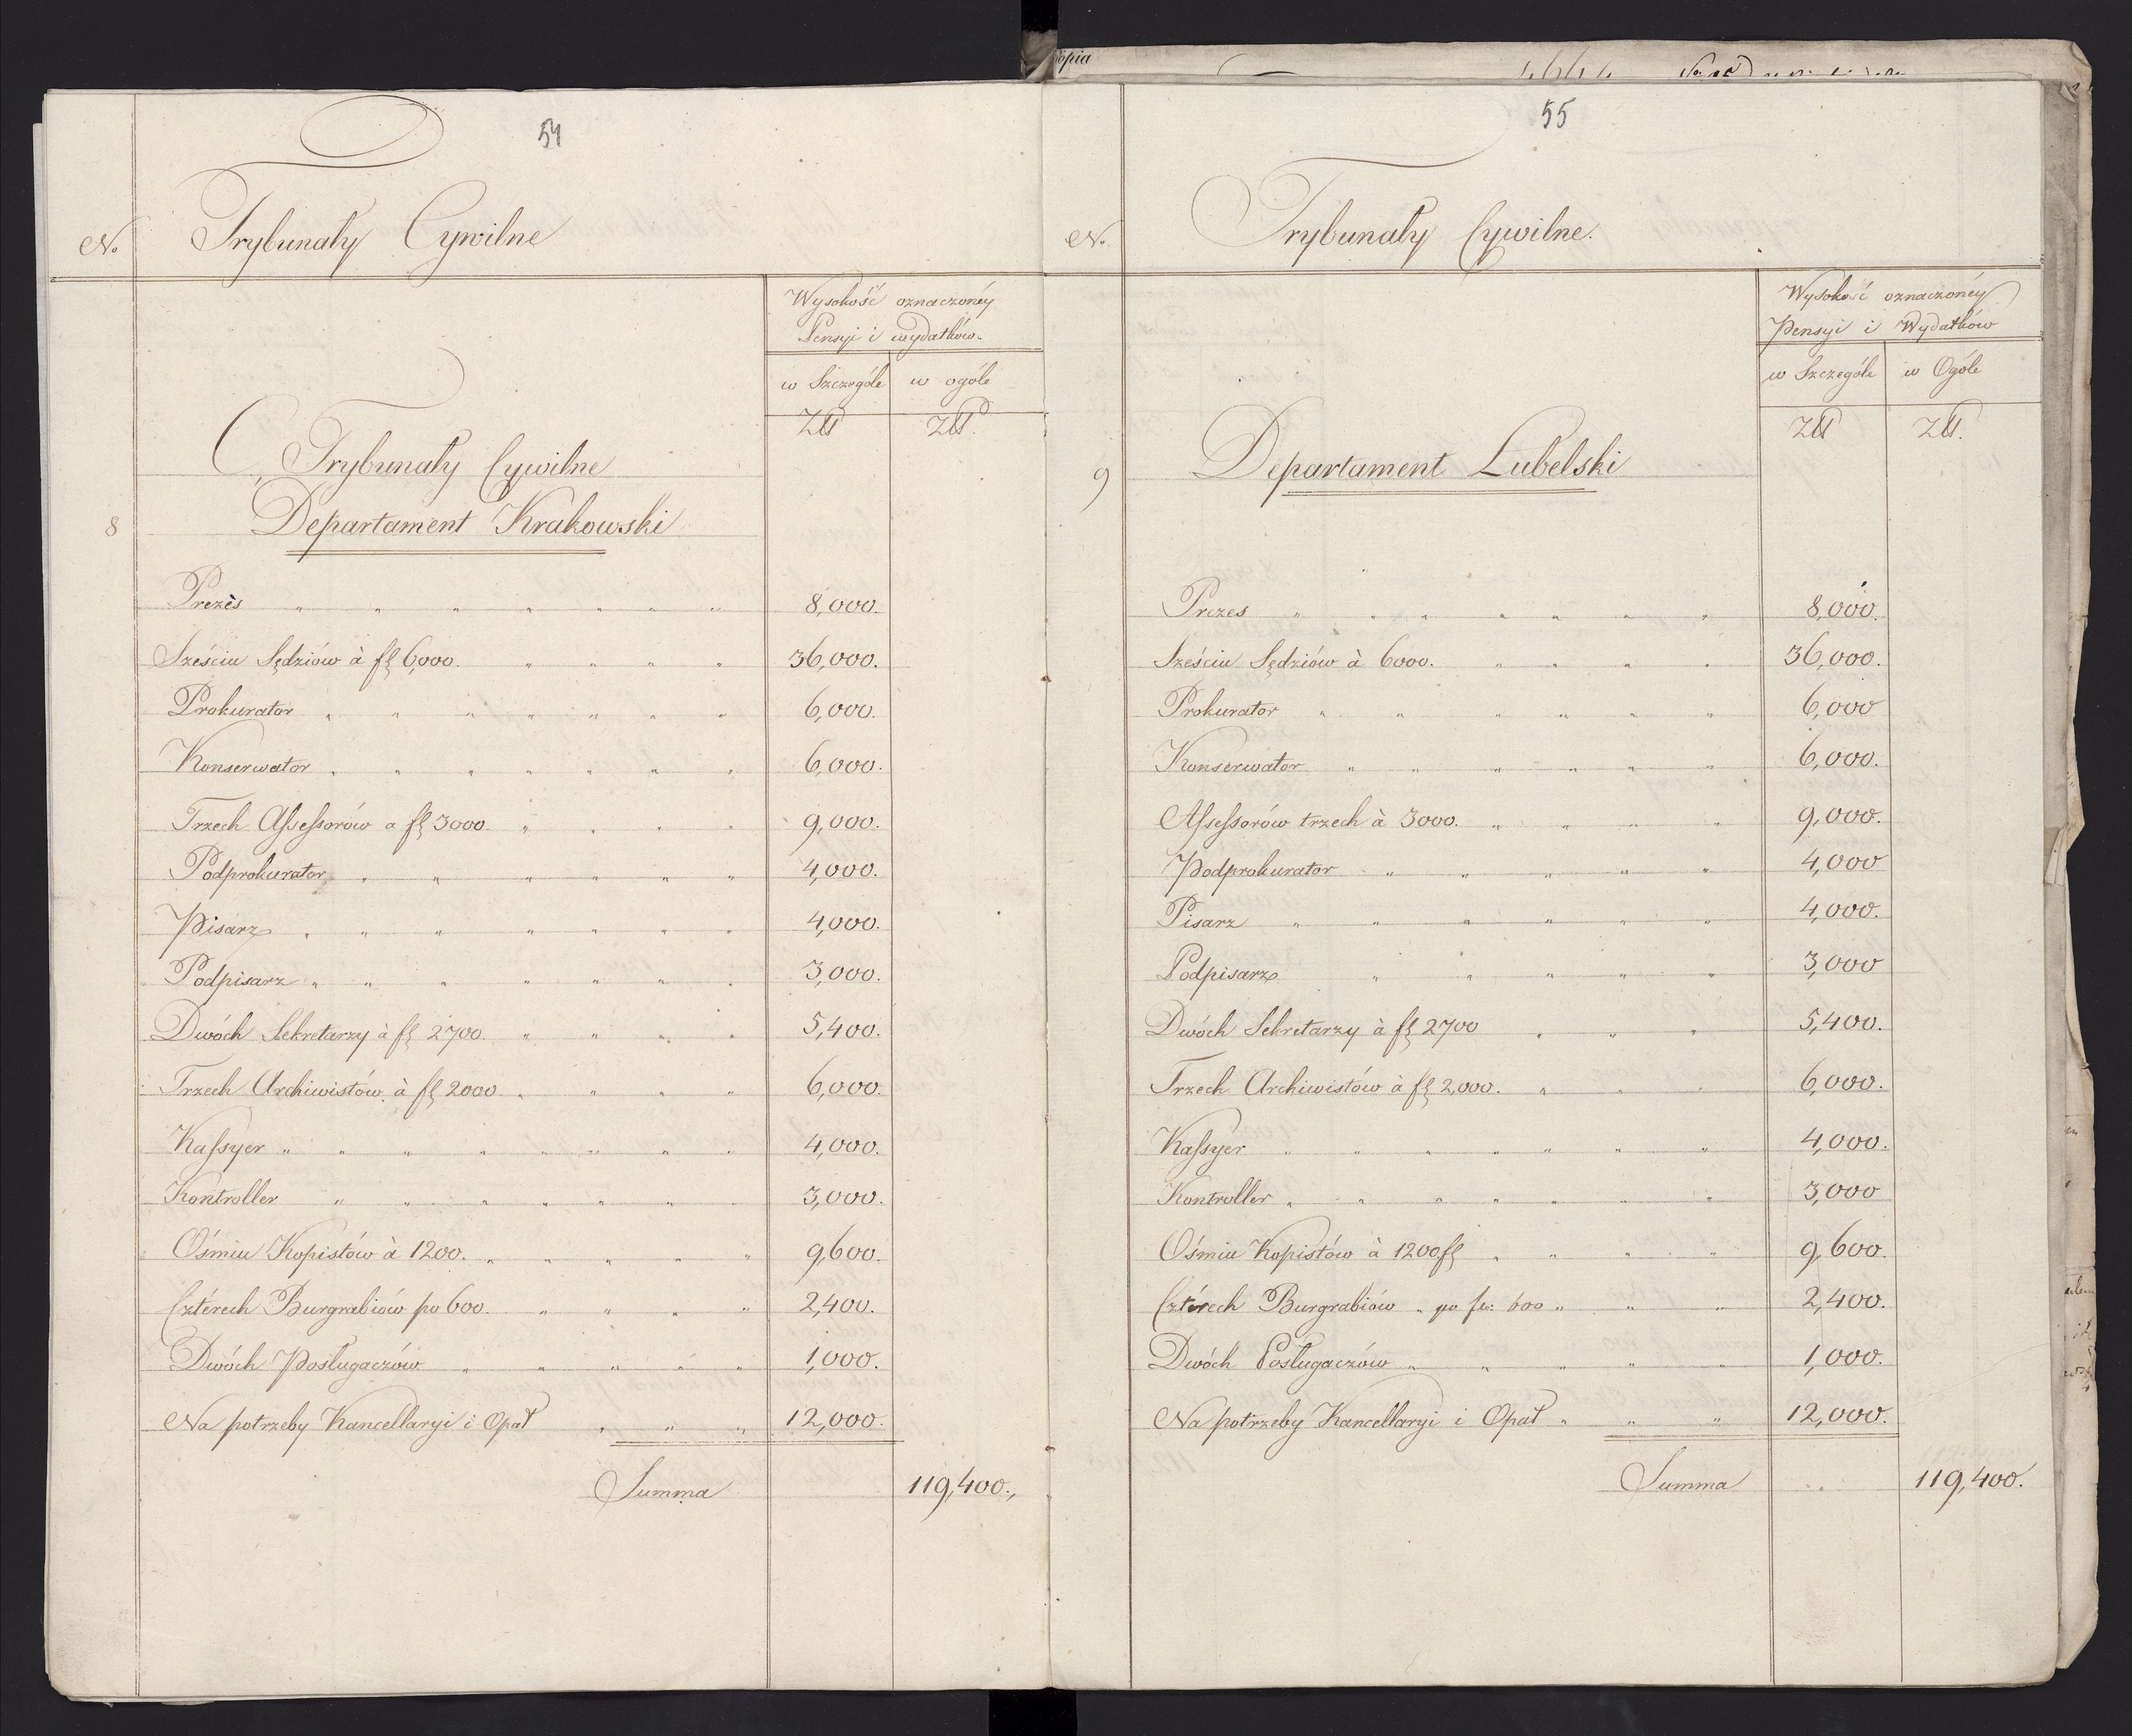 54
No Trybunały Cywilne
Wysokość oznaczonéy
Pensyi i wydatków.
w Szczególe w ogóle
Złł Złł.
Trybunały Cywilne
8 Departament Krakowski
Prezès " " " " " " " " 8,000.
Sześciu Sędziów à fl 6,000. " " " " 36,000.
Prokurator " " " " " " " 6,000.
Konserwator " " " " " " " 6,000.
Trzech Assessorów a fl 3000. " " " " 9,000.
Podprokurator " " " " " " 4,000.
Pisarz " " " " " " " 4,000.
Podpisarz " " " " " " " 3,000.
Dwóch Sekretarzy à fl 2700. " " " " 5,400.
Trzech Archiwistów à fl 2000 " " " " 6,000.
Kassyer " " " " " " " " 4,000.
Kontroller " " " " " " " 3,000.
Ośmiu Kopistów à 1200. " " " " " 9,600.
Cztérech Burgrabiów po 600. " " " " 2,400.
Dwóch Posługaczów " " " " " 1,000.
Na potrzeby Kancellaryi i Opał " " " 12,000.
Summa 119,400.
opia
55
No. Trybunały Cywilne.
Wysokość oznaczonéy
Pensyi i Wydatków
w Szczególe w Ogóle
Złł Złł.
9 Departament Lubelski
Prezes " " " " " " " 8,000.
Sześciu Sędziów à 6000. " " " " 36,000.
Prokurator " " " " " " 6,000
Konserwator " " " " " " 6,000.
Assessorów trzech à 3000. " " " " 9,000.
Podprokurator " " " " " 4,000
Pisarz " " " " " " 4,000.
Podpisarz " " " " " 3,000
Dwóch Sekretarzy à fl 2700 " " " 5,400.
Trzech Archiwistów à fl 2,000. " " " 6,000.
Kassyer " " " " " " " 4,000.
Kontroller " " " " " " " 3,000
Ośmiu Kopistów à 1200 fl " " " " 9,600.
Cztérech Burgrabiów " po fl: 600 " " " 2,400.
Dwóch Posługaczów " " " " " 1,000.
Na potrzeby Kancellaryi i Opał " " " 12,000.
Summa " 119,400.